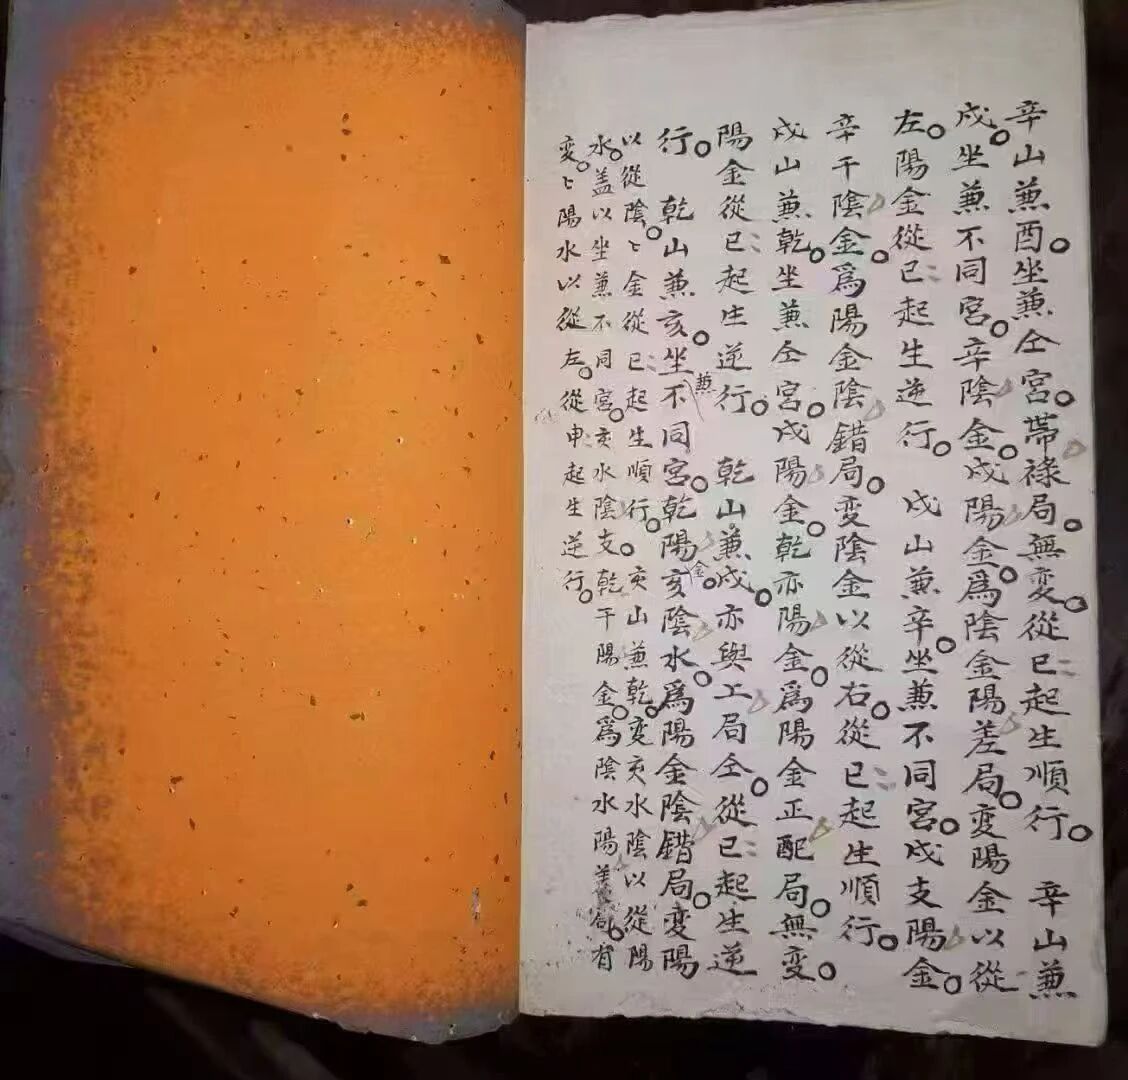 辛山兼酉。坐兼仝宮。帶祿局。無変。從巳起生順行。 辛山兼
戌。坐兼不同宮。辛陰金。戌陽金。爲陰金陽差局。変陽金以從
左。陽金從巳起生逆行。 戌山兼辛。坐兼不同宮。戌支陽金。
辛干陰金。爲陽金陰錯局。変陰金以從右。從巳起生順行。
戌山兼乾。坐兼仝宮。戌陽金。乾亦陽金。爲陽金正配局。無変。
陽金從巳起生逆行。 乾山兼戌。亦與上局仝。從巳起生逆
行。 乾山兼亥。坐兼不同宮。乾陽金。亥陰水。爲陽金陰錯局。変陽
以從陰。〻金從巳起生順行。亥山兼乾。変亥水陰以從陽
水。盖以坐兼不同宮。亥水陰支。乾干陽金。爲陰水陽差局。有
変。〻陽水以從左。從申起生逆行。